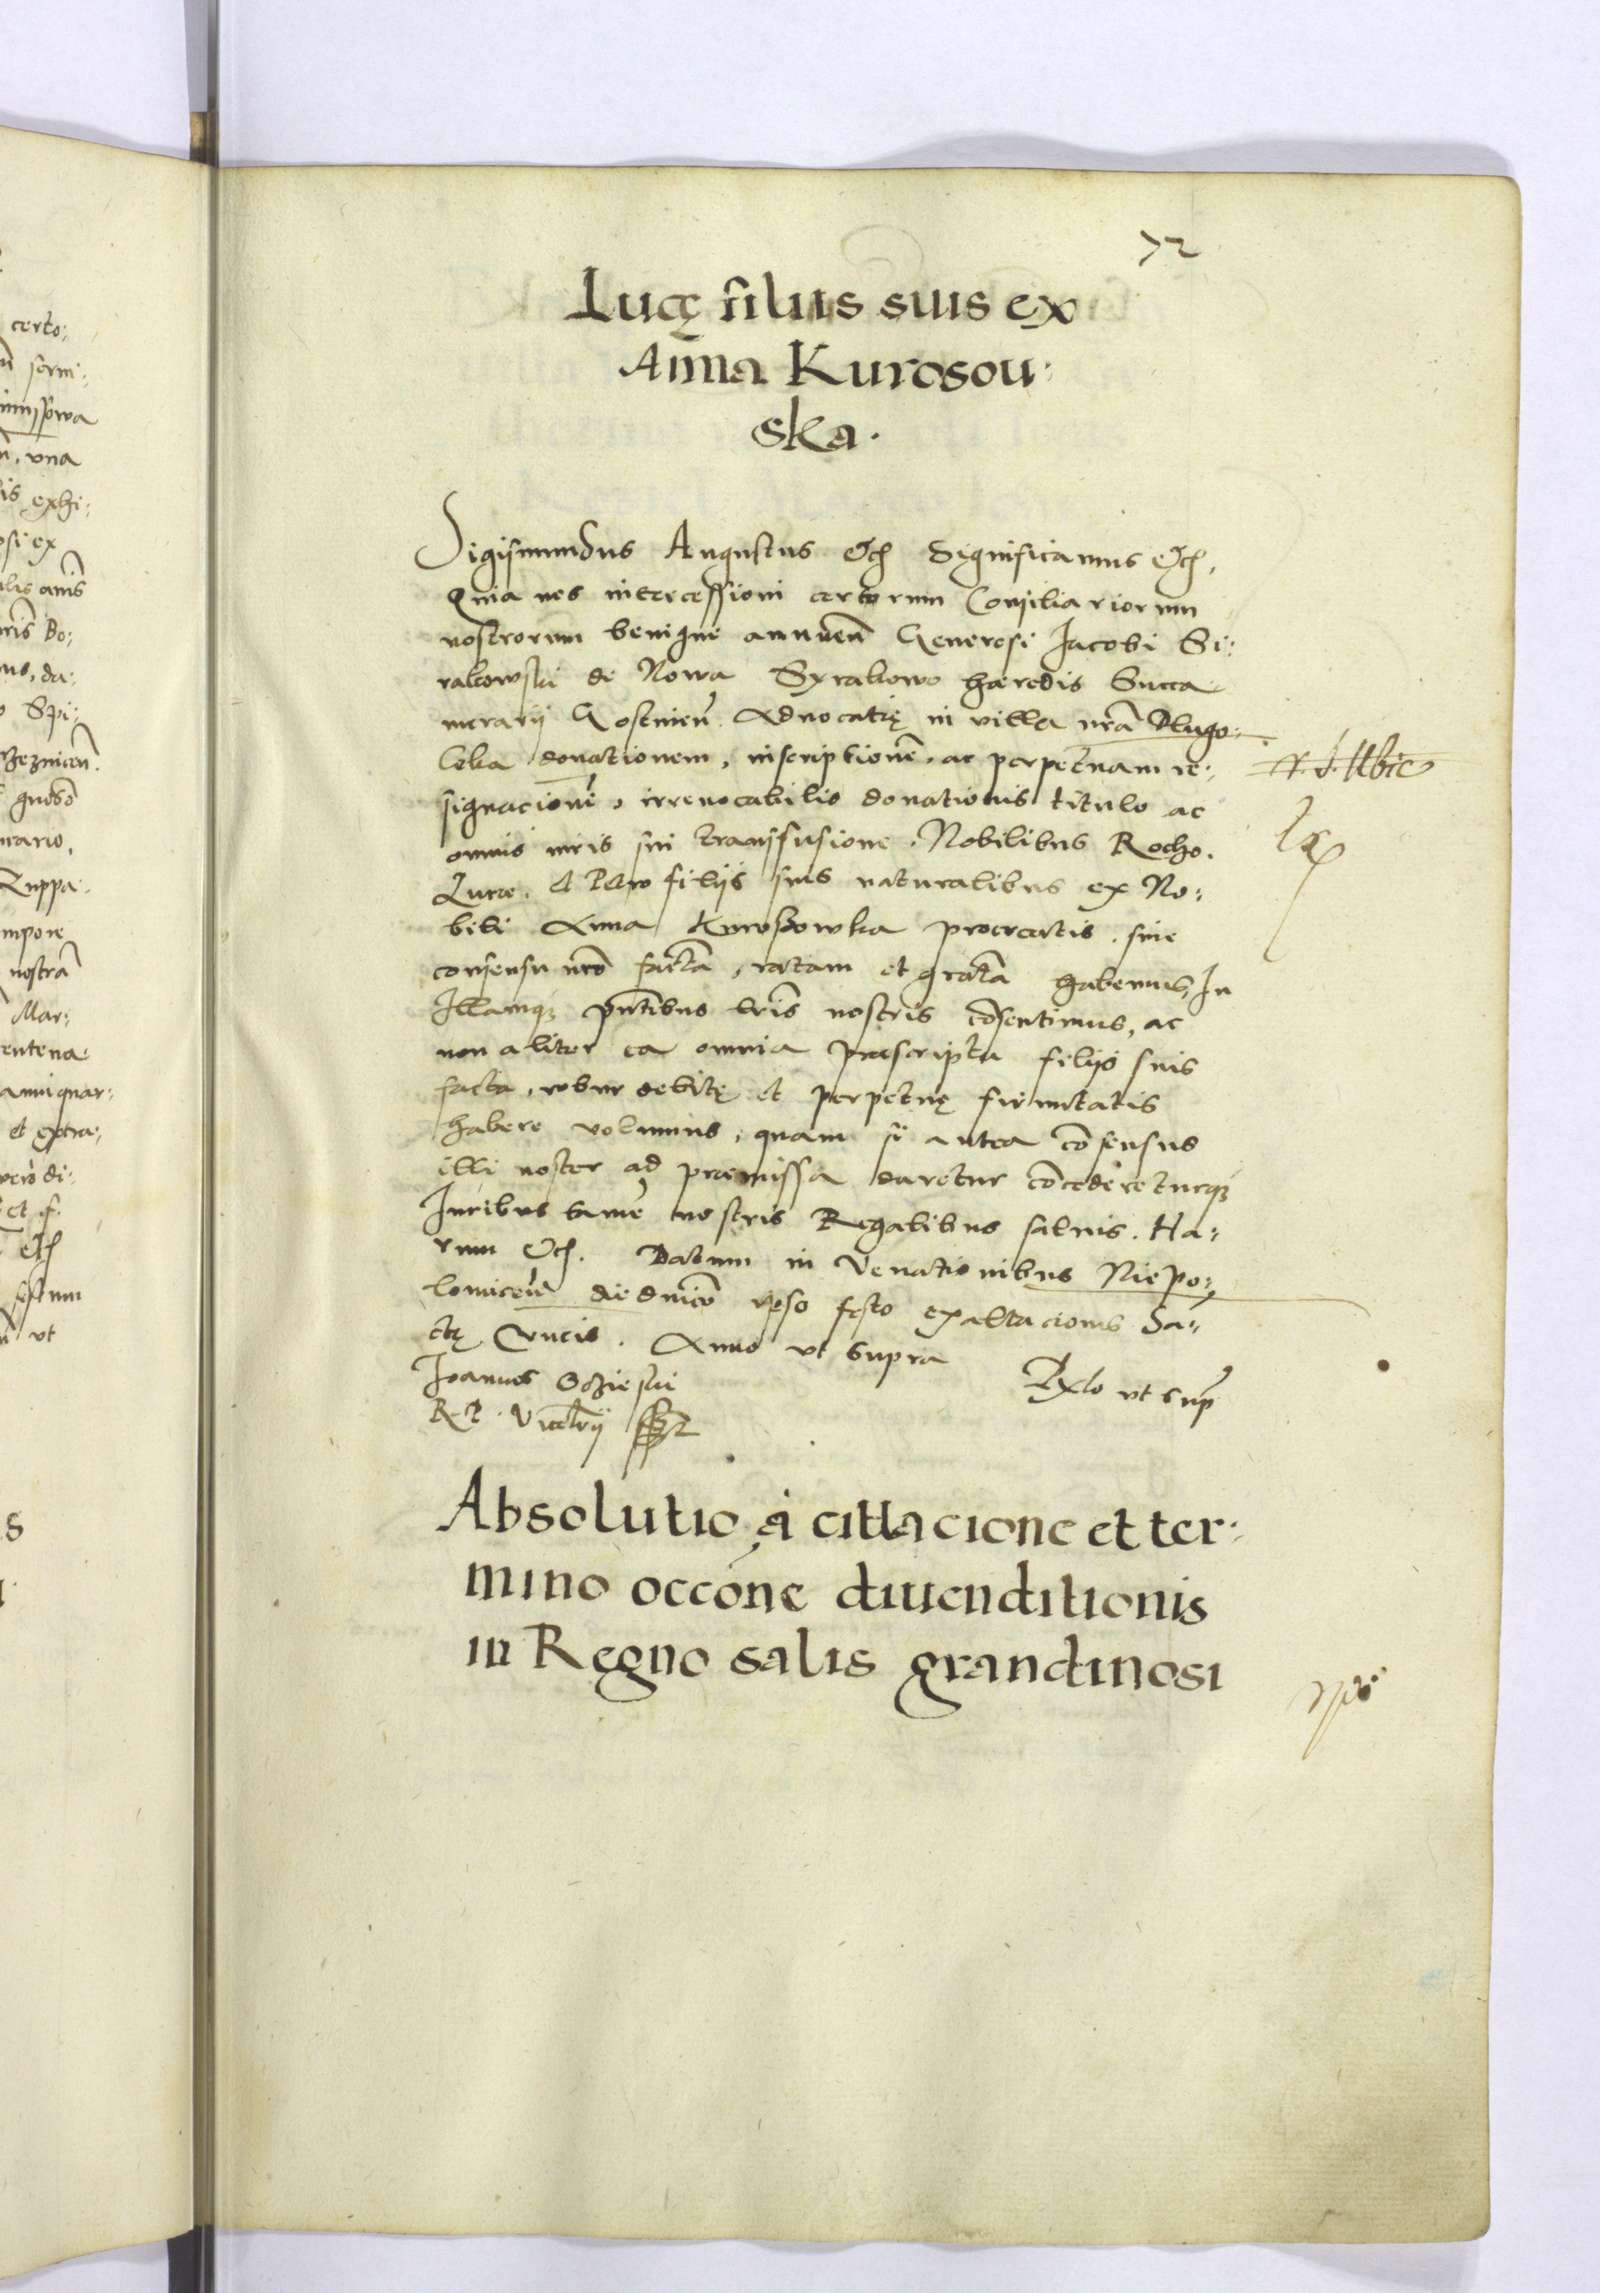 72
Lucę filiis suis ex
Anna Kurosou:
ska.
Sigismundus Augustus Etc Significamus Etc,
Quia nos intercessioni certorum Consiliariorum
nostrorum benigne annuen̄ Generosi Jacobi Si:
rakowski de Nowa Syrakowo hæredis Succa
merarij Gostinien̄ Aduocatię in villa nr̄a Dlugo:
leka donationem, inscriptionē, ac perpetuam re:
signacionē, irreuocabilis donationis titulo ac
omnis iuris sui transfusione, Nobilibus Rocho,
Lucæ, et Petro filijs suis naturalibus ex No:
bili Anna Kurossowska procreatis, sine
consensu nr̄o factā, ratam et gratā habemus, In
Illamq; pn̄tibus lr̄is nostris cōsentimus, ac
non aliter ea omnia præscripta filijs suis
facta, robur debitę et perpetuę firmitatis
habere volumus, quam si antea cōsensus
illi noster ad præmissa daretur cōcedereturq;
Iuribus tamē nostris Regalibus saluis. Ha:
rum Etc. Datum in Venationibus Niepo:
lomicen̄ die dn̄ico ipso festo exaltacionis Sa:
ctę Crucis. Anno vt supra
Joannes Oczieski
R. P. Vicecācrij
Rx̄lo vt sup̄
Absolutio à cittacione et ter:
mino occōne diuenditionis
in Regno salis grandinosi
certo:
vna
exhi:
Do:
da:
Spi:
Zuppa
mpore
nostrā
Mar:
entena
et extra:
di:
Etc
vt